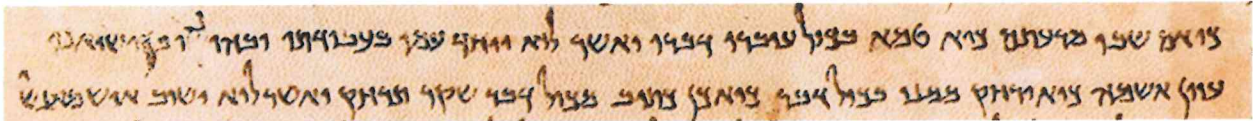 כיאם שבו מרעתם כיא טמא בכול עוברי דברו ואשר לוא ייחד עמו בעבודתו ובהונו פן ישיאנו
עוון אשמה כיא ירחק ממנו בכול דבר כיא כן כתוב מכול דבר שקר תרחק ואשר לוא ישוב איש מאנשי